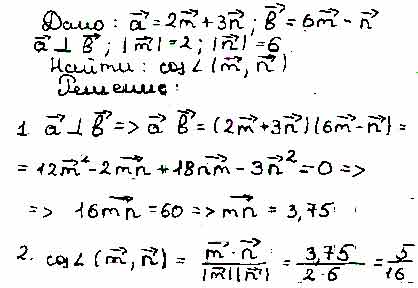 Дано: a⃗ = 2m⃗ + 3n⃗; b⃗ = 6m⃗ - n⃗
a⃗ ⊥ b⃗; |m⃗| = 2; |n⃗| = 6
Найти: cos∠(m⃗, n⃗)
Решение:
1 a⃗ ⊥ b⃗ => a⃗ b⃗ = (2m⃗ + 3n⃗)(6m⃗ - n⃗) =
= 12m⃗² - 2m⃗n⃗ + 18n⃗m⃗ - 3n⃗² = 0 =>
=> 16m⃗n⃗ = 60 => m⃗n⃗ = 3,75
2. cos∠(m⃗, n⃗) = m⃗ · n⃗ / |m⃗||n⃗| = 3,75 / 2·6 = 5/16